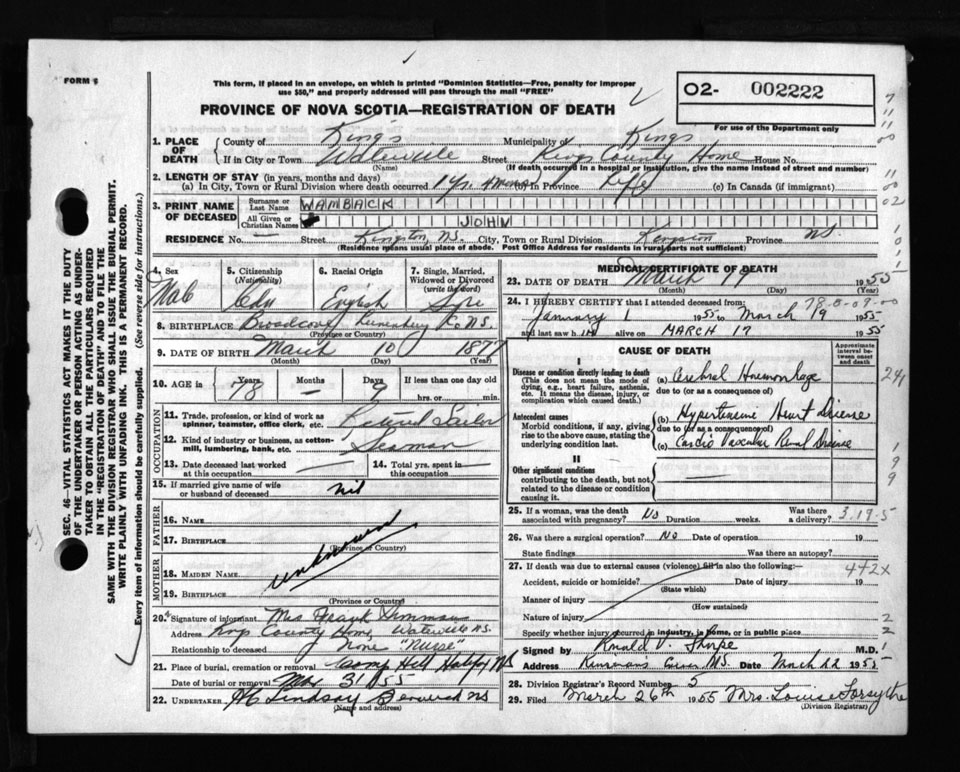 FORM
This form, if placed in an envelope, on which is printed "Dominion Statistics—Free, penalty for improper
use $50," and properly addressed will pass through the mail "FREE"
O2- 002222
For use of the Department only
PROVINCE OF NOVA SCOTIA—REGISTRATION OF DEATH
SEC. 46—VITAL STATISTICS ACT MAKES IT THE DUTY
OF THE UNDERTAKER OR PERSON ACTING AS UNDER-
TAKER TO OBTAIN ALL THE PARTICULARS REQUIRED
IN THE "REGISTRATION OF DEATH" AND TO FILE THE
SAME WITH THE DIVISION REGISTRAR WHO SHALL ISSUE THE BURIAL PERMIT.
WRITE PLAINLY WITH UNFADING INK. THIS IS A PERMANENT RECORD.
Every item of information should be carefully supplied. (See reverse side for instructions.)
1. PLACE OF DEATH County of Kings Municipality of Kings
If in City or Town Waterville Street Kings County Home House No.
(Name) (If death occurred in a hospital or institution, give the name instead of street and number)
2. LENGTH OF STAY (in years, months and days)
(a) In City, Town or Rural Division where death occurred 1 yr. (b) In Province Life (c) In Canada (if immigrant)
3. PRINT NAME OF DECEASED Surname or Last Name WAMBACK
All Given or Christian Names JOHN
RESIDENCE No. — Street Kingston, N.S. City, Town or Rural Division Kingston Province N.S.
(Residence means usual place of abode. Post Office Address for residents in rural parts not sufficient)
4. Sex Male
5. Citizenship (Nationality) Cdn
6. Racial Origin English
7. Single, Married, Widowed or Divorced (write the word)
8. BIRTHPLACE Broadcove Lunenburg Co N.S.
(Province or Country)
9. DATE OF BIRTH March 10 1877
(Month) (Day) (Year)
10. AGE in Years 78 Months — Days 9 If less than one day old hrs. or min.
OCCUPATION
11. Trade, profession, or kind of work as spinner, teamster, office clerk, etc. Retired Sailor
12. Kind of industry or business, as cotton-mill, lumbering, bank, etc. Seaman
13. Date deceased last worked at this occupation — 14. Total yrs. spent in this occupation —
15. If married give name of wife or husband of deceased nil
FATHER
16. NAME
17. BIRTHPLACE unknown
(Province or Country)
MOTHER
18. MAIDEN NAME
19. BIRTHPLACE
(Province or Country)
20. Signature of informant Mrs Frank
Address Kings County Home, Waterville N.S.
Relationship to deceased None "Nurse"
21. Place of burial, cremation or removal Camp Hill Halifax NS
Date of burial or removal Mar 31 1955
22. UNDERTAKER Lindsay Berwick NS
(Name and address)
MEDICAL CERTIFICATE OF DEATH
23. DATE OF DEATH March 19 1955
(Month) (Day) (Year)
78-0-09-00
24. I HEREBY CERTIFY that I attended deceased from:
January 1 1955 to March 19 1955
and last saw him alive on MARCH 17 1955
CAUSE OF DEATH
Approximate interval between onset and death
I
Disease or condition directly leading to death
(This does not mean the mode of dying, e.g., heart failure, asthenia, etc. It means the disease, injury, or complication which caused death.)
(a) Cerebral Haemorrhage
due to (or as a consequence of)
Antecedent causes
Morbid conditions, if any, giving rise to the above cause, stating the underlying condition last.
(b) Hypertensive Heart Disease
due to (or as a consequence of)
(c) Cardio Vascular Renal Disease
II
Other significant conditions
contributing to the death, but not related to the disease or condition causing it.
25. If a woman, was the death associated with pregnancy? No Duration weeks. Was there a delivery? 3-19-5
26. Was there a surgical operation? No Date of operation 19
State findings Was there an autopsy?
27. If death was due to external causes (violence) fill in also the following: 442x
Accident, suicide or homicide? Date of injury 19
(State which)
Manner of injury
(How sustained)
Nature of injury
Specify whether injury occurred in industry, in home, or in public place
Signed by Ronald V. Thorpe M.D.
Address N.S. Date March 22 1955
28. Division Registrar's Record Number 5
29. Filed March 26th 1955 Mrs. Louise Forsythe
(Division Registrar)